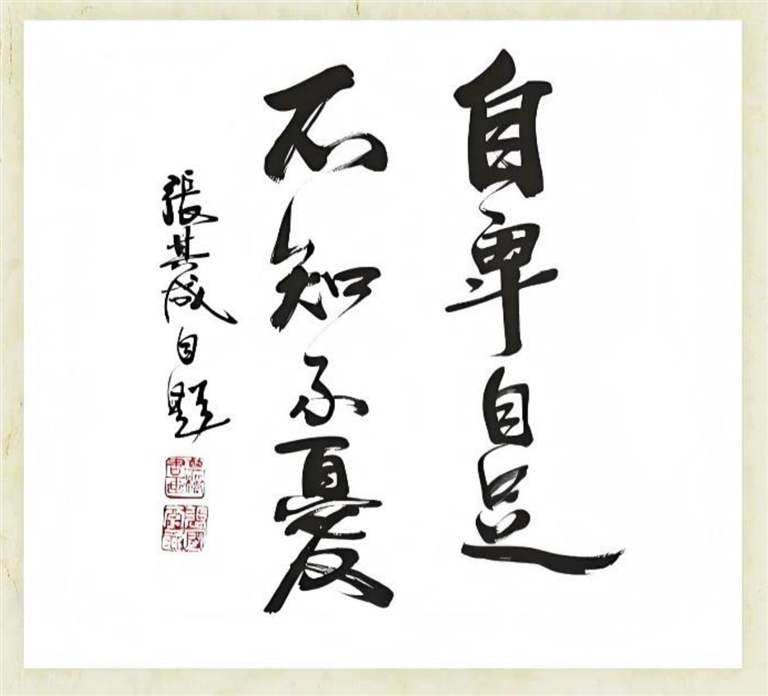 自卑自足
不知不憂
張其成自題